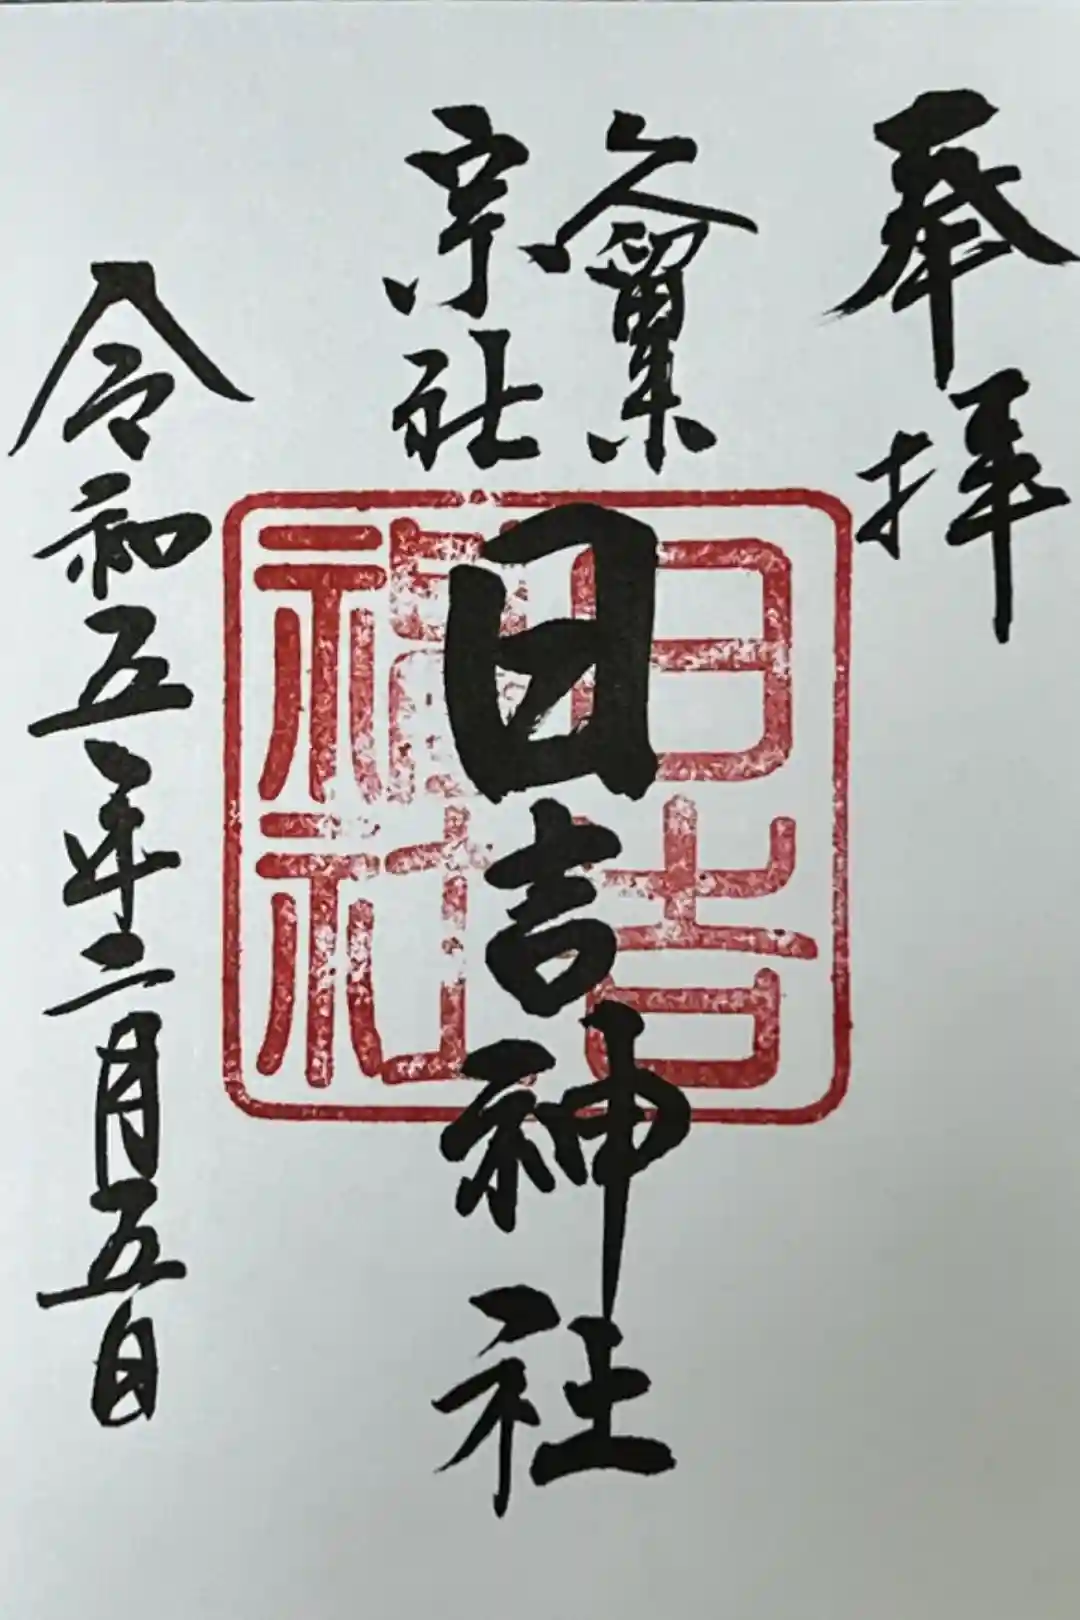 奉拝
久留米
宗社
日吉神社
令和五年二月五日
日吉
神社